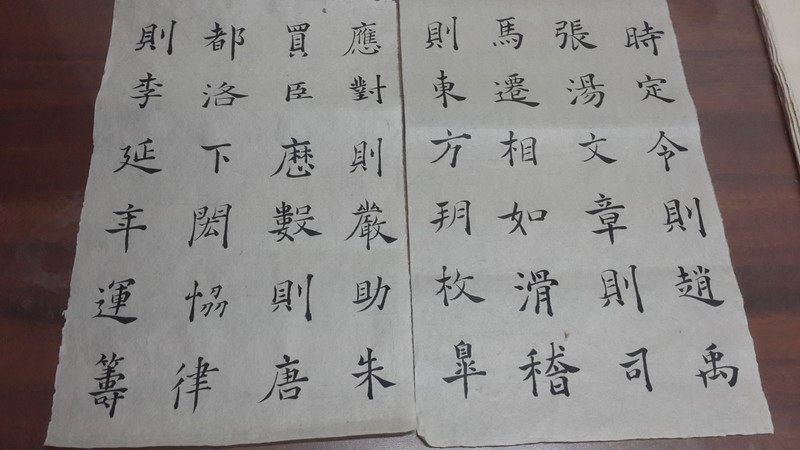 時定令則趙禹
張湯文章則司
馬遷相如滑稽
則東方朔枚皐
應對則嚴助朱
買臣曆數則唐
都洛下閎恊律
則李延年運籌